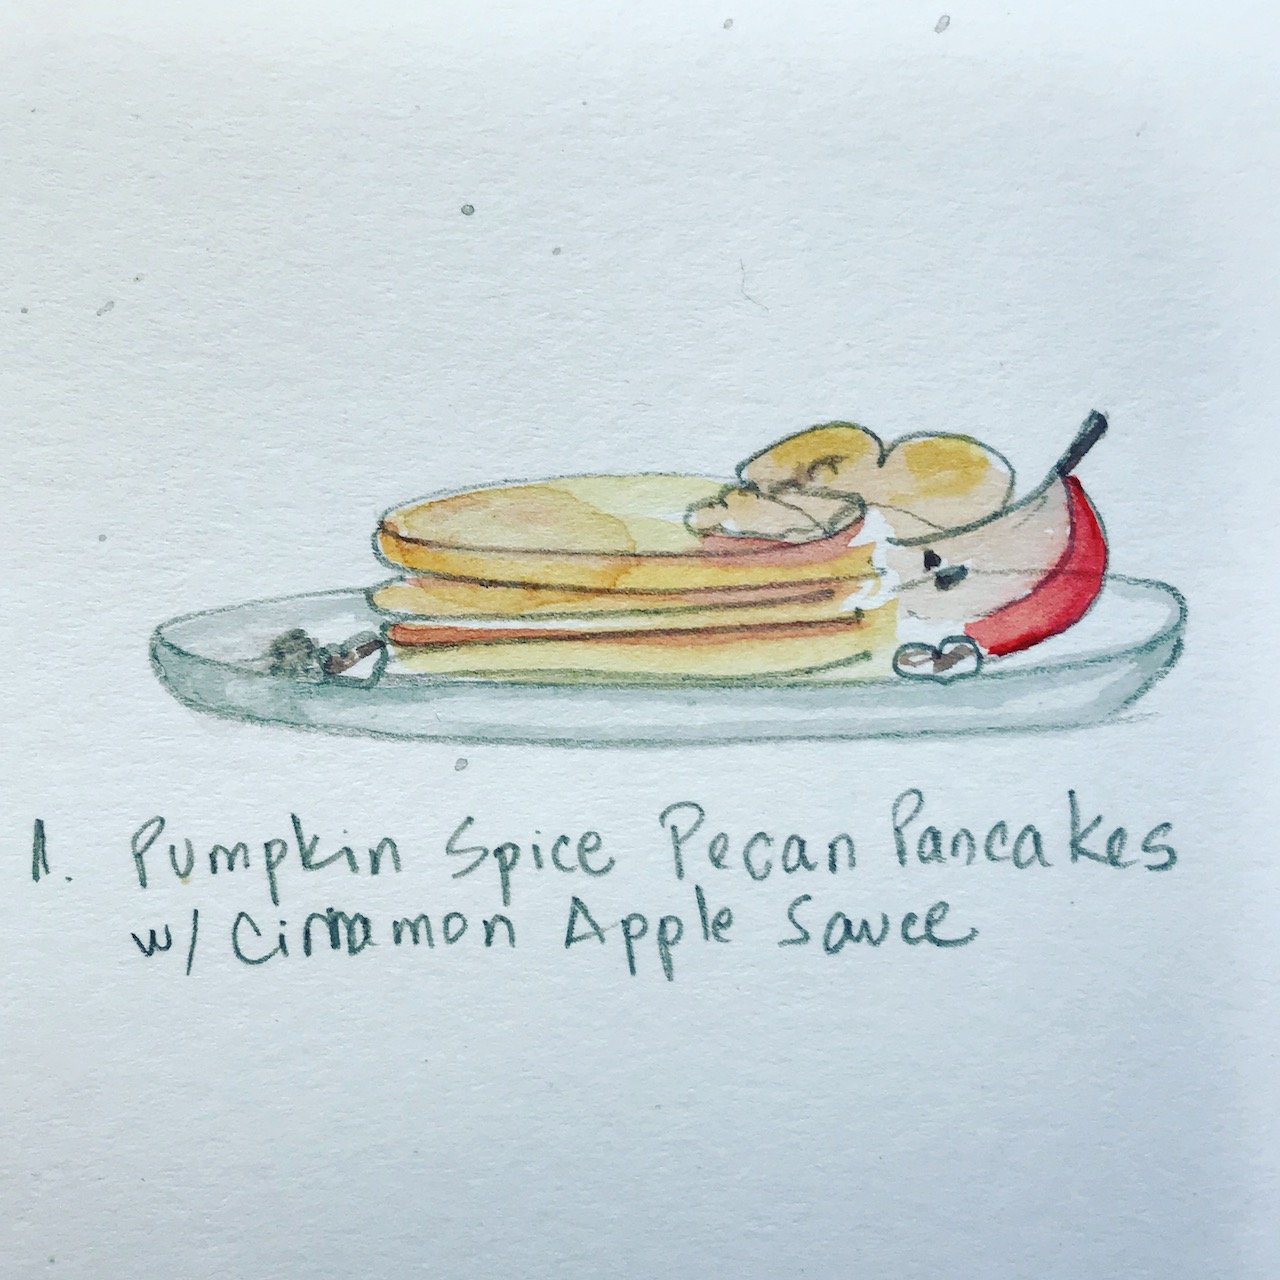 1. Pumpkin Spice Pecan Pancakes
w/ Cinnamon Apple Sauce